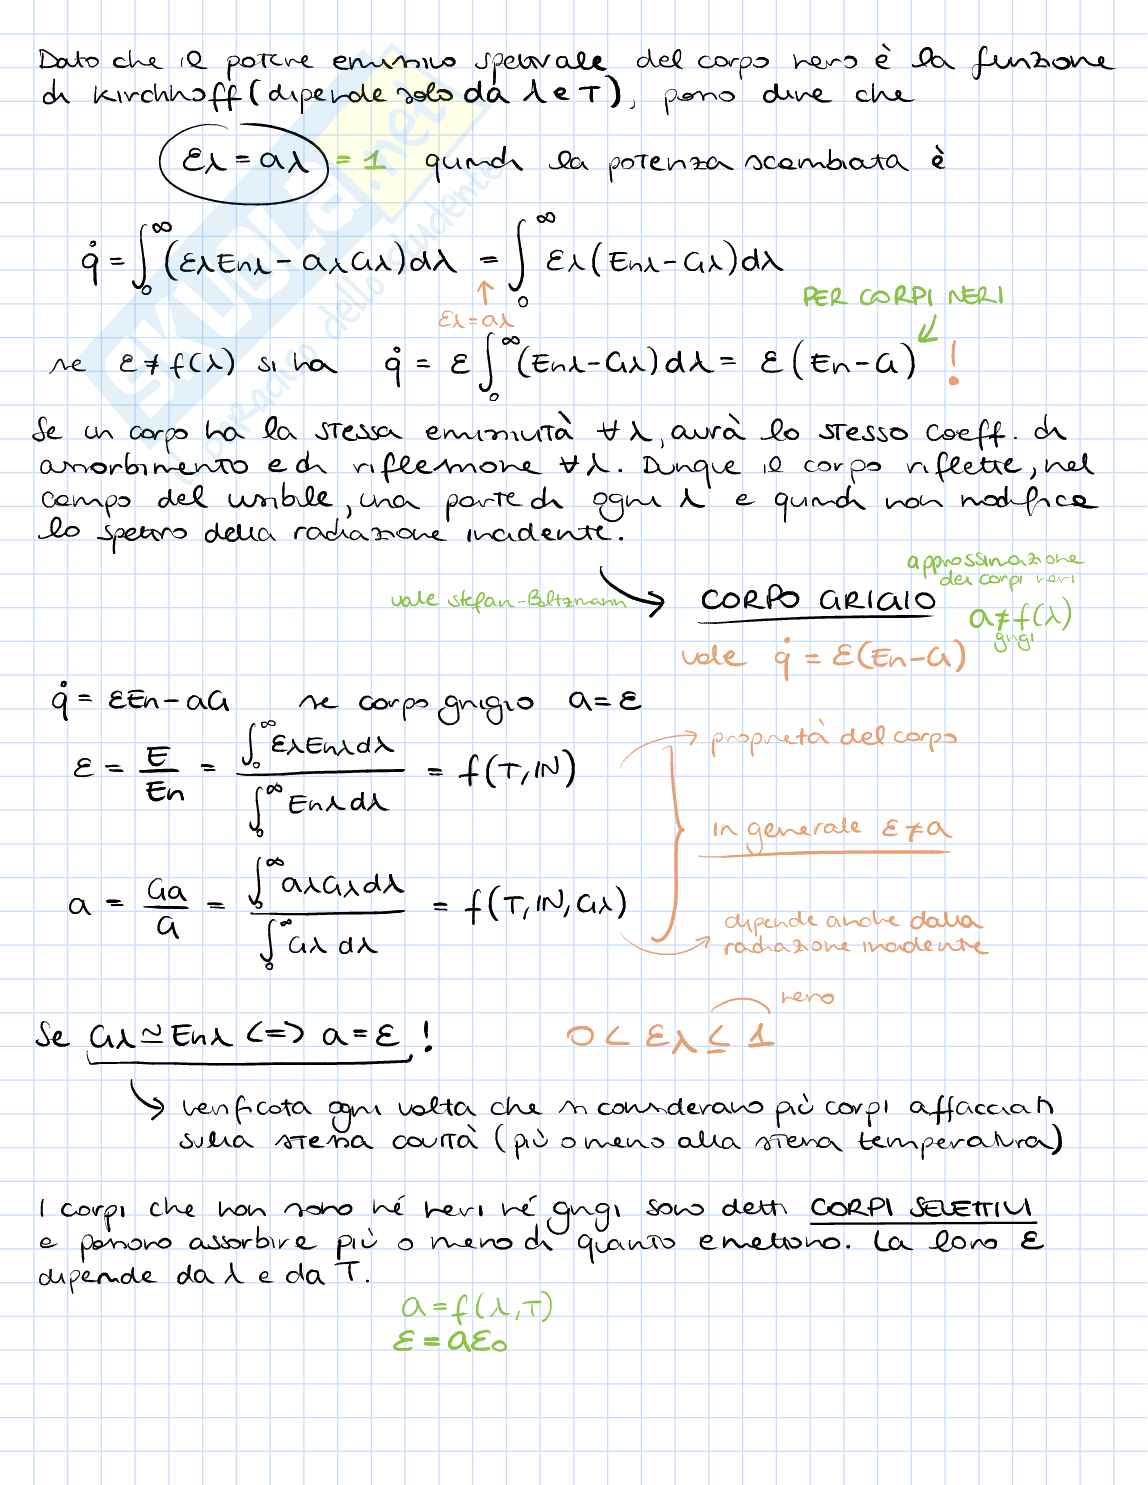 Dato che il potere emissivo spettrale del corpo nero è la funzione
di Kirchhoff (dipende solo da λ e T), posso dire che
ελ = aλ = 1 quindi la potenza scambiata è
q̇ = ∫₀^∞ (ελEnλ - aλGλ)dλ = ∫₀^∞ ελ(Enλ-Gλ)dλ
ελ=aλ
PER CORPI NERI
se ε ≠ f(λ) si ha q̇ = ε∫₀^∞ (Enλ-Gλ)dλ = ε(En-G) !
Se un corpo ha la stessa emissività ∀λ, avrà lo stesso coeff. di
assorbimento e di riflessione ∀λ. Dunque il corpo riflette, nel
campo del visibile, una parte di ogni λ e quindi non modifica
lo spettro della radiazione incidente.
approssimazione
dei corpi neri
vale Stefan-Boltzmann
CORPO GRIGIO
a≠f(λ)
grigi
vale q̇ = ε(En-G)
q̇ = εEn - aG se corpo grigio a=ε
ε = E/En = ∫₀^∞ ελEnλdλ / ∫₀^∞ Enλdλ = f(T,IN)
proprietà del corpo
in generale ε≠a
a = Ga/G = ∫₀^∞ aλGλdλ / ∫₀^∞ Gλdλ = f(T,IN,Gλ)
dipende anche dalla
radiazione incidente
Se Gλ≃Enλ <=> a=ε !
0 < ελ ≤ 1
nero
verificata ogni volta che si considerano più corpi affacciati
sulla stessa cavità (più o meno alla stessa temperatura)
I corpi che non sono né neri né grigi sono detti CORPI SELETTIVI
e possono assorbire più o meno di quanto emettono. La loro ε
dipende da λ e da T.
a=f(λ,T)
ε=aε₀
SKUOLA.net
il paradiso dello studente